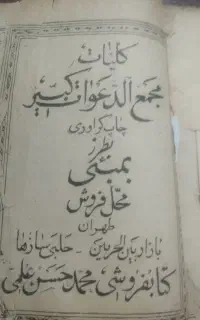 کلیات
مجمع الدعوات کبیر
چاپ گراوری
بطرز
بمبئی
محل فروش
طهران
بازار بین الحرمین - حلبی سازها
کتابفروشی محمد حسن علمی